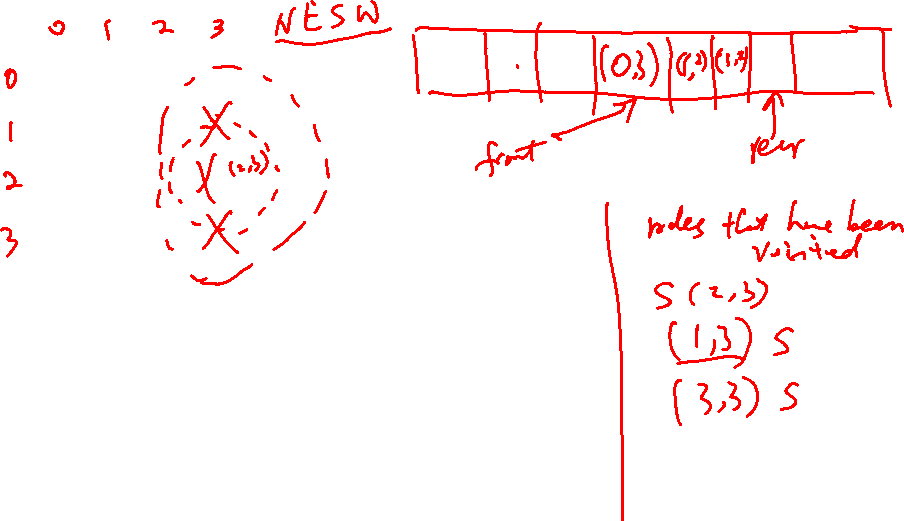 0 1 2 3 NESW
0
1
2
3
X
X (2,3)
X
(0,3) (1,2)
front
rear
nodes that have been
visited
S (2,3)
(1,3) S
(3,3) S